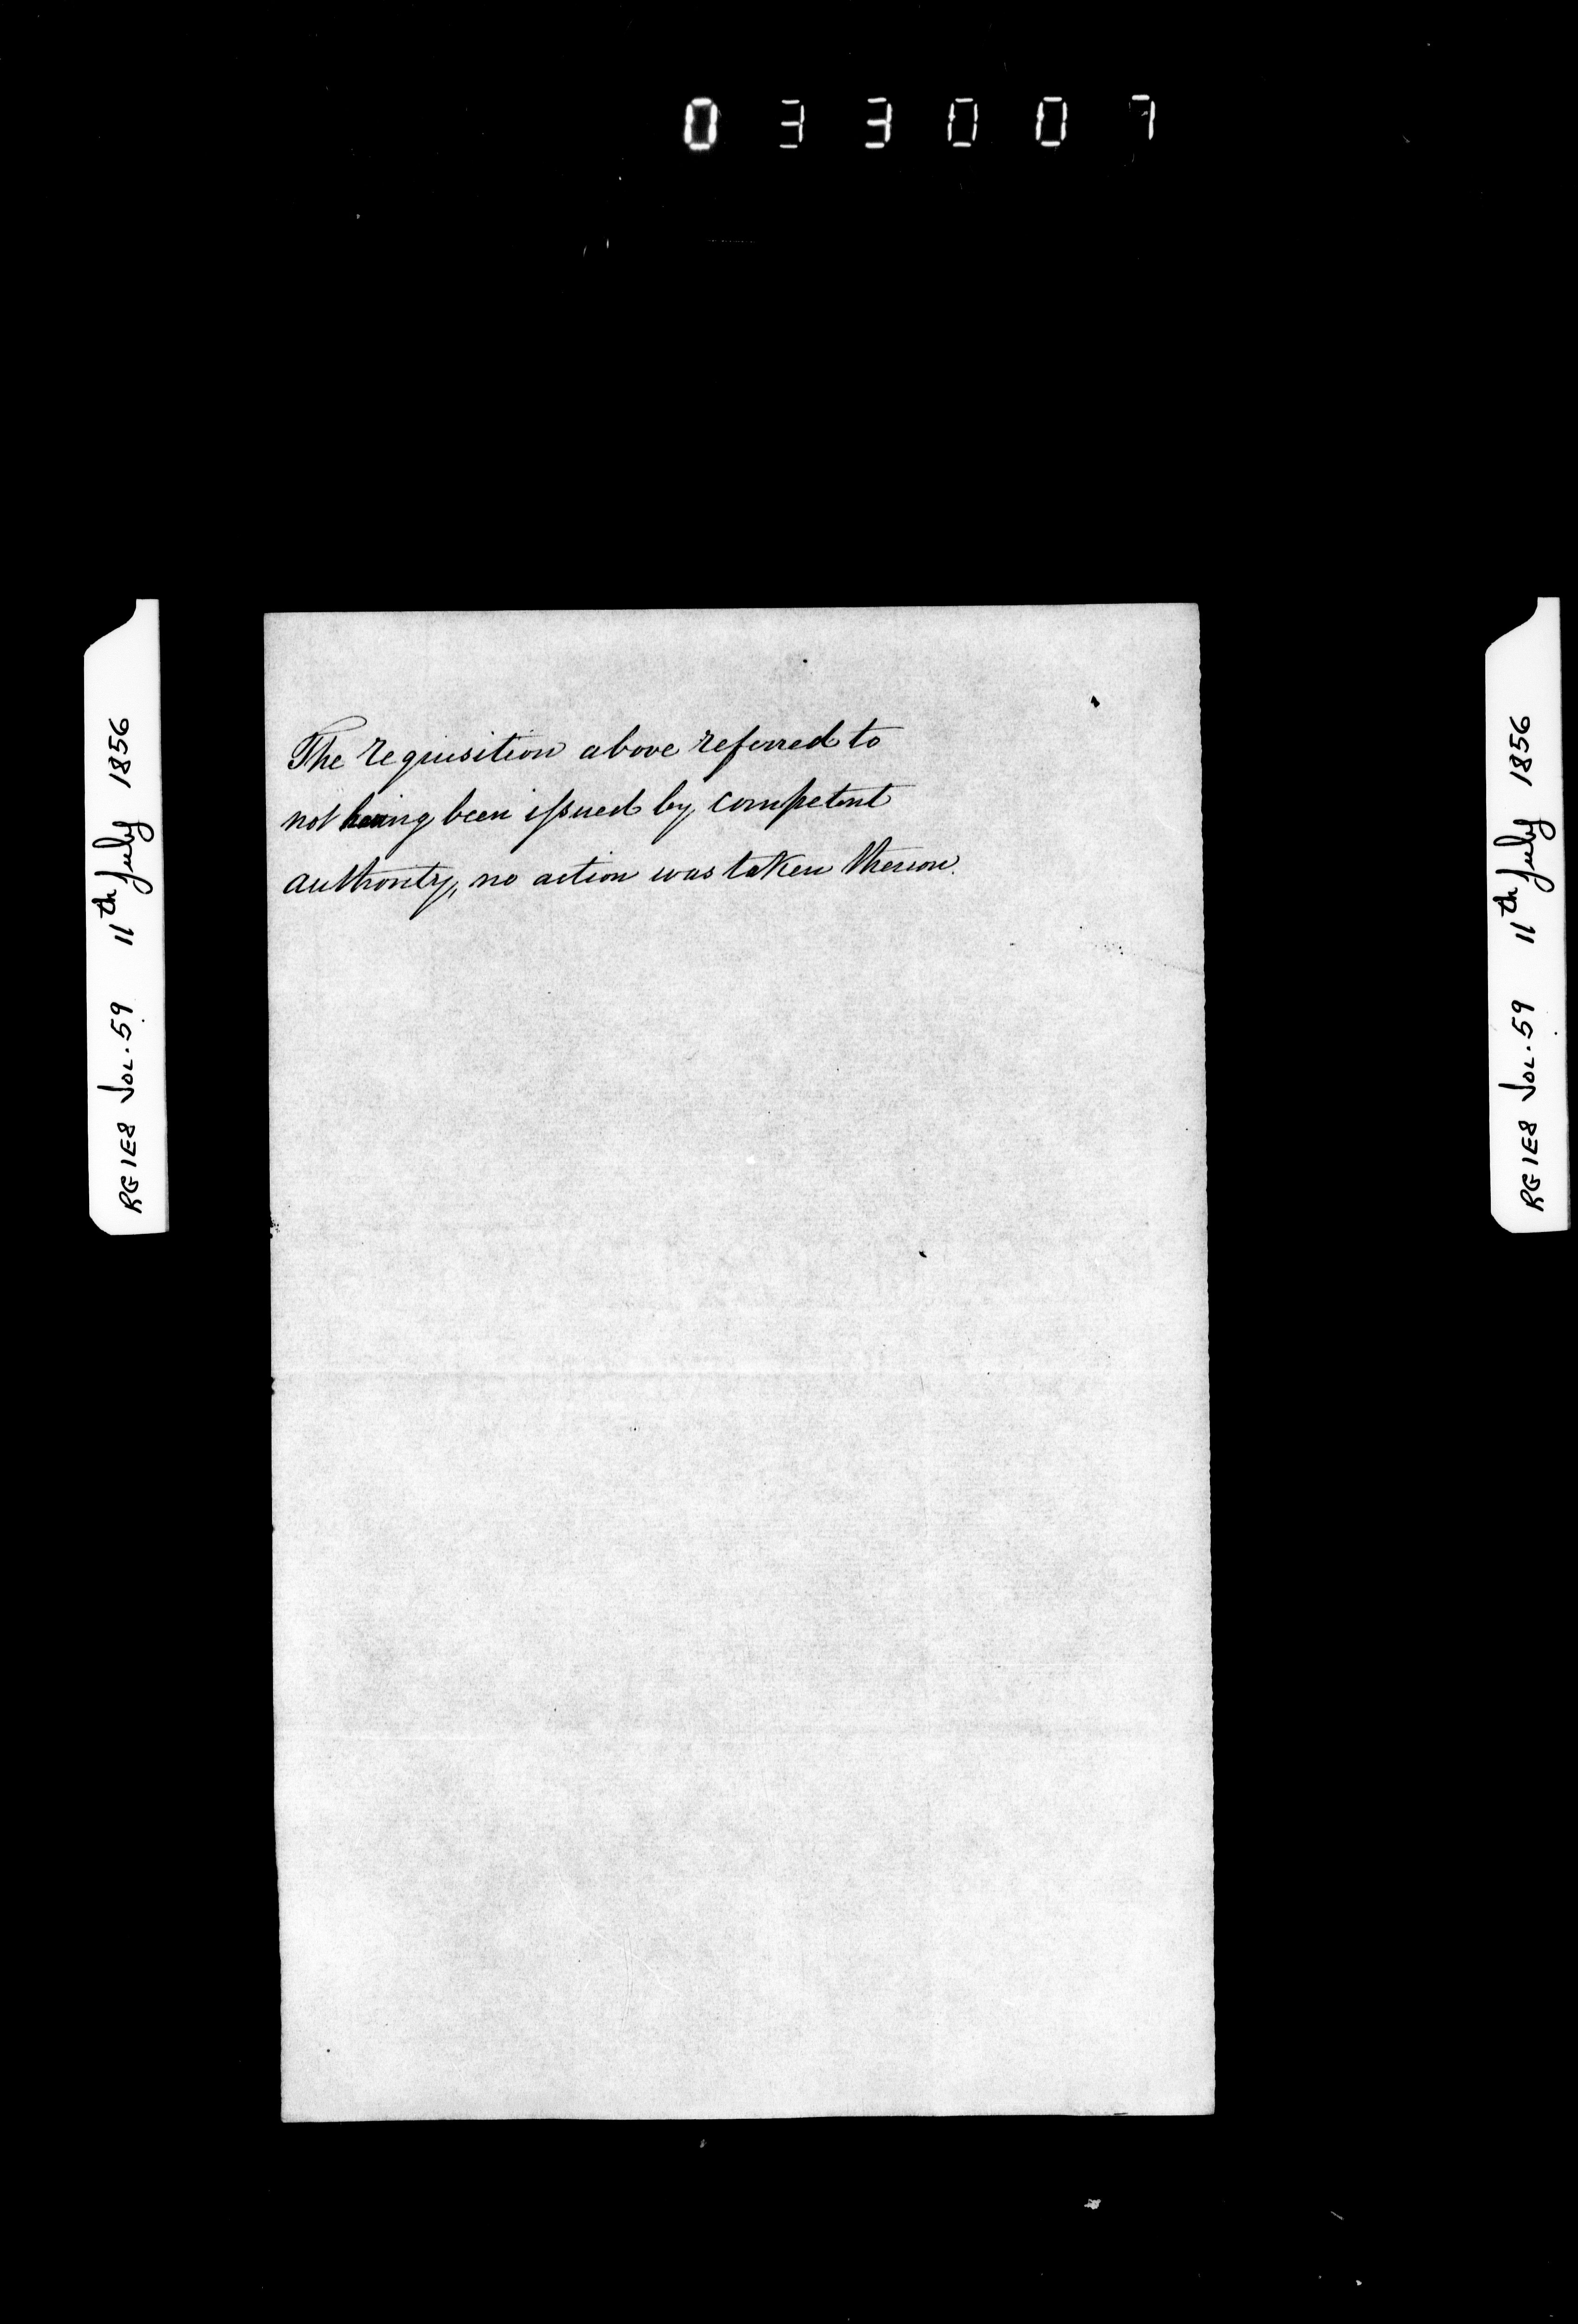 033007
RG1E8 VOL.59 11th July 1856
The requisition above referred to
not having been issued by competent
authority, no action was taken thereon.
RG1E8 VOL.59 11th July 1856